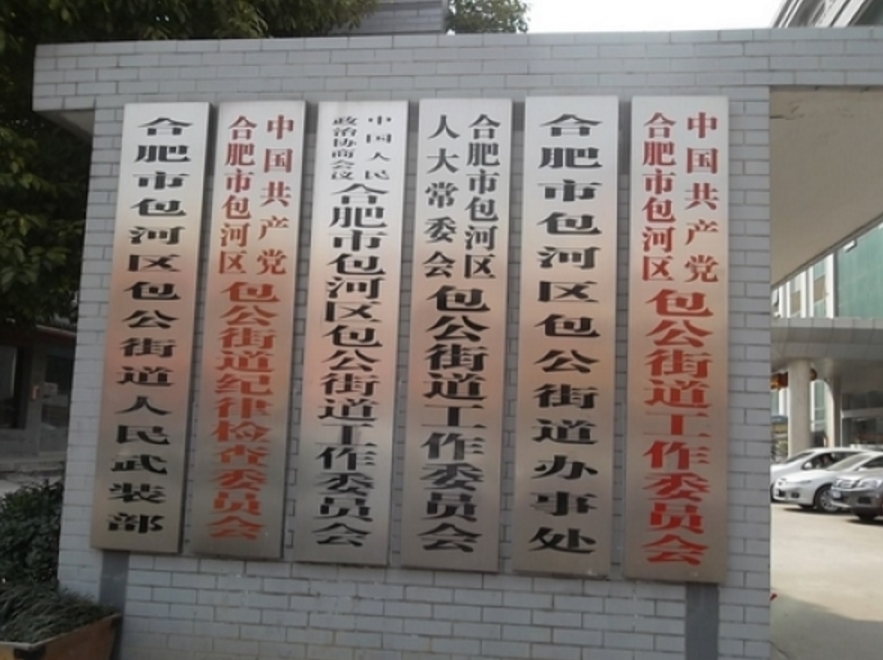 中国共产党
合肥市包河区
包公街道工作委员会
合肥市包河区包公街道办事处
合肥市包河区
人大常委会
包公街道工作委员会
中国人民
政治协商会议
合肥市包河区包公街道工作委员会
中国共产党
合肥市包河区
包公街道纪律检查委员会
合肥市包河区包公街道人民武装部